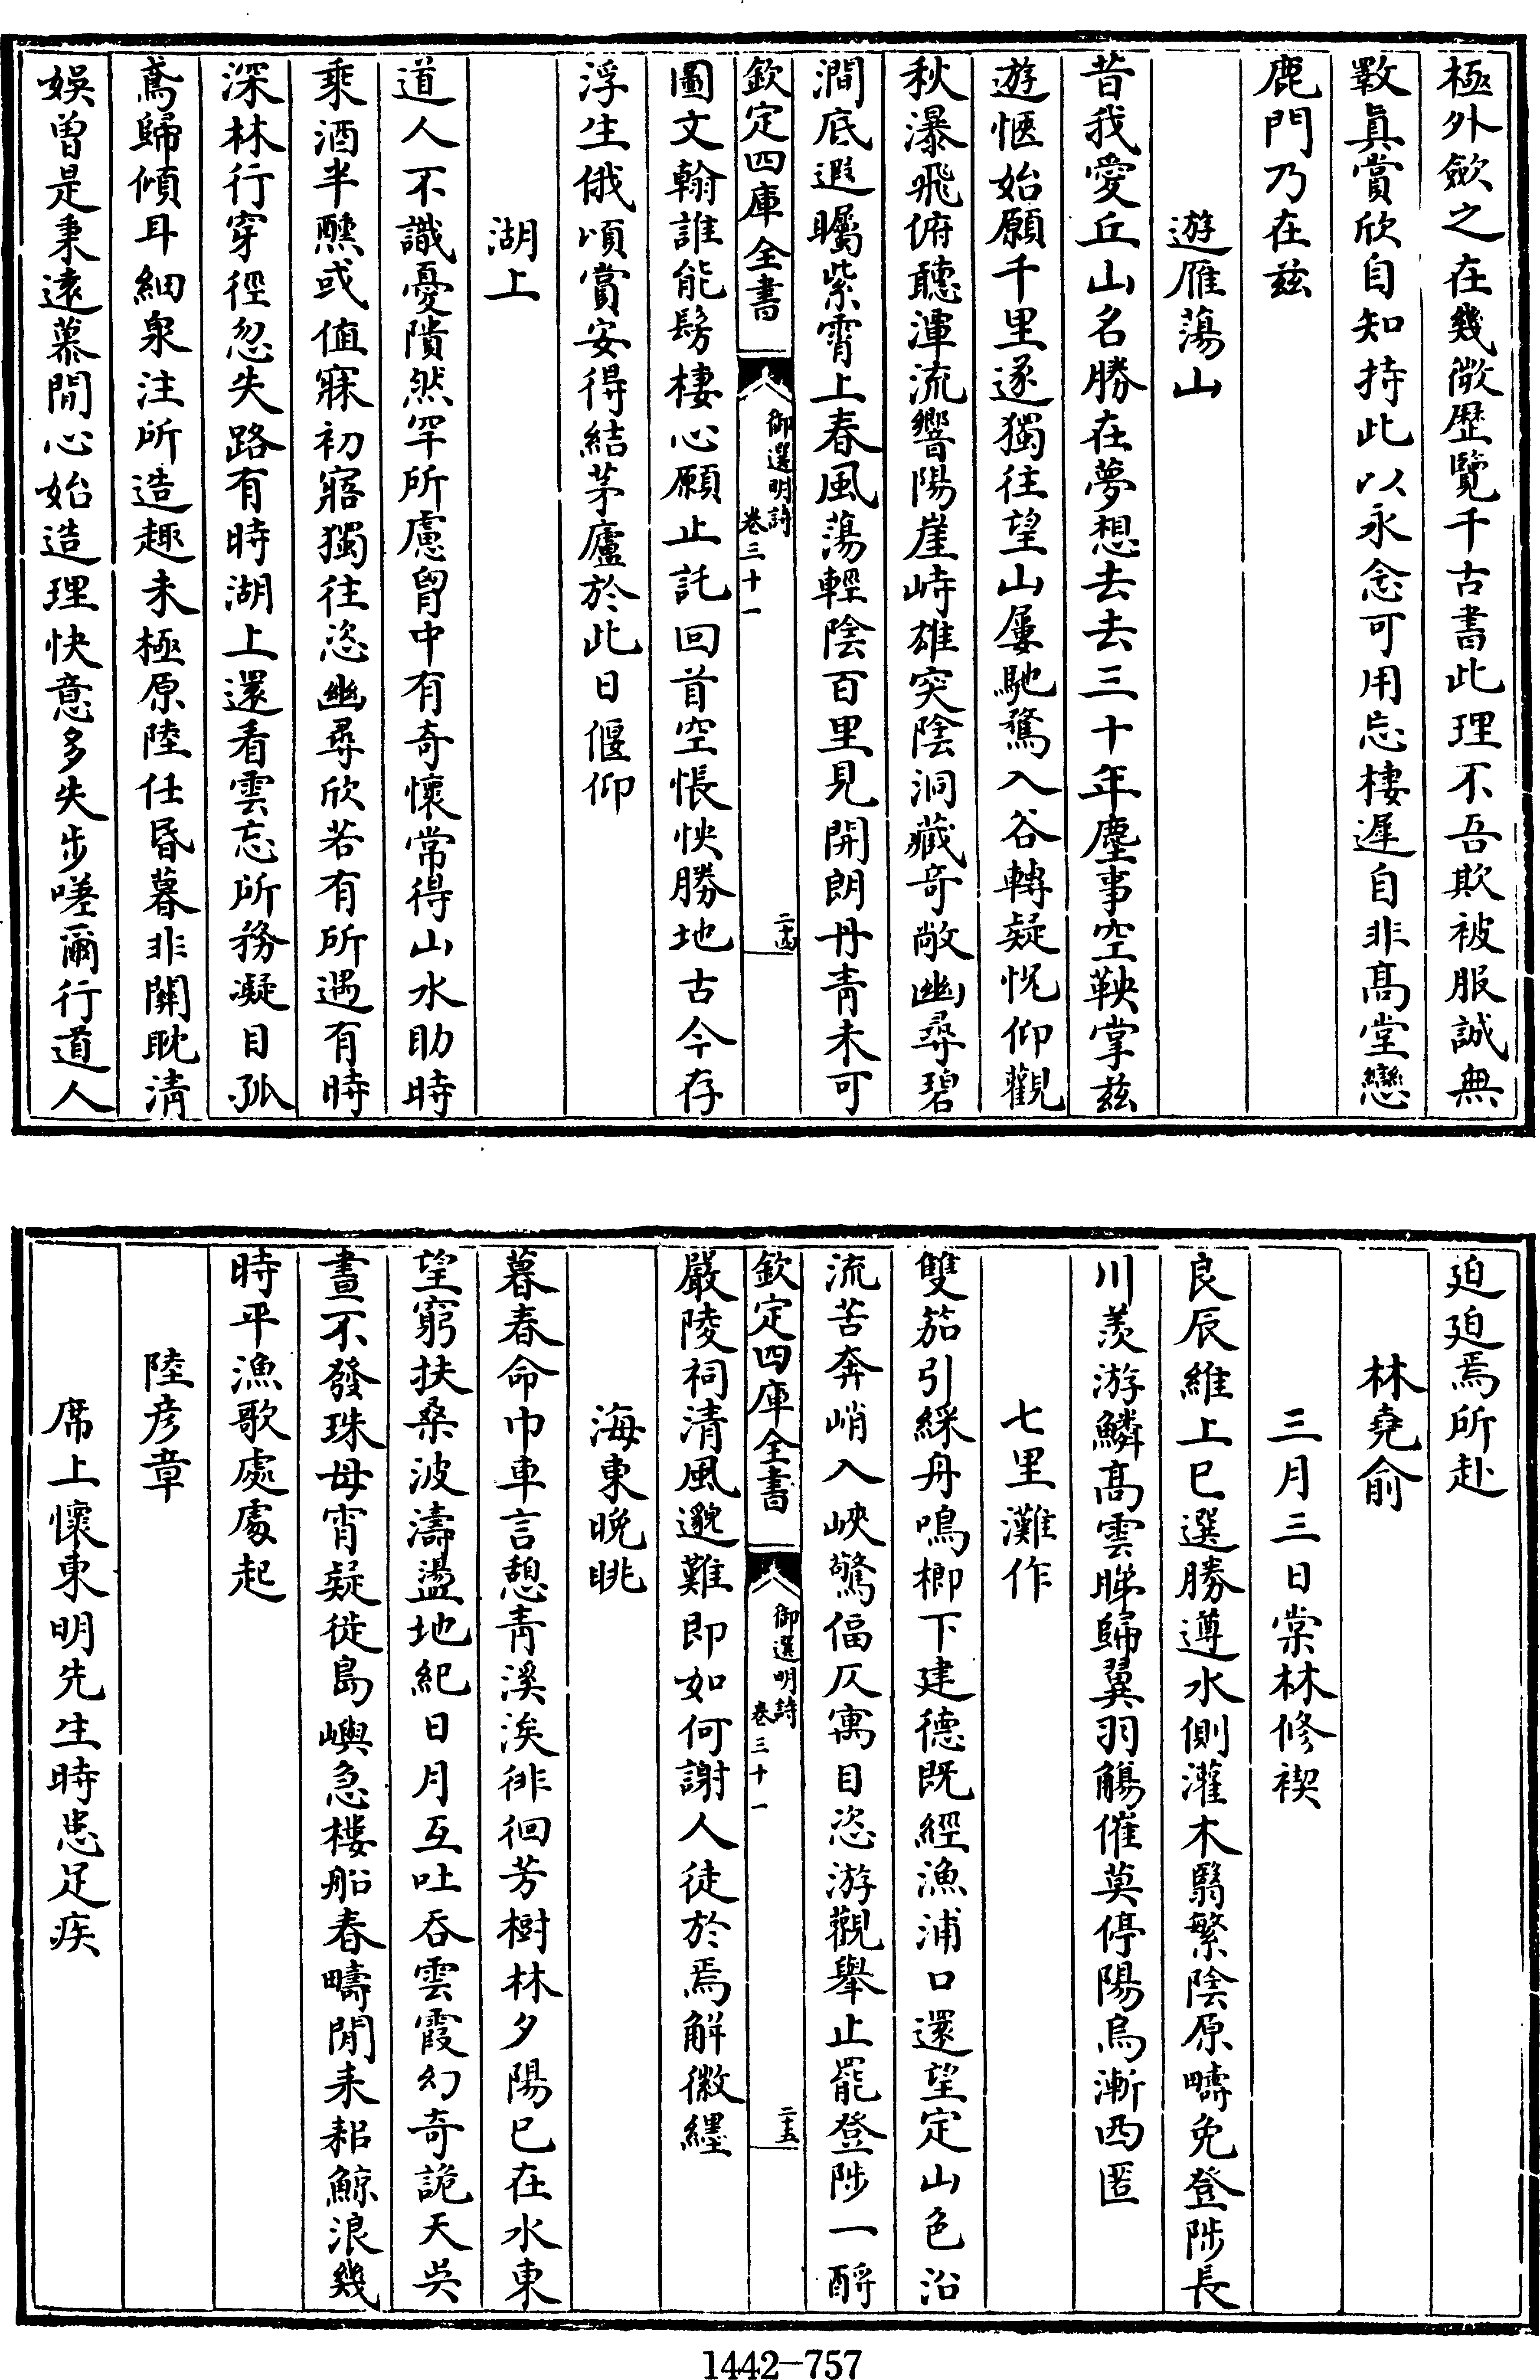 極外斂之在幾微歷覽千古書此理不吾欺被服誠無
斁真賞欣自知持此以永念可用忘棲遲自非髙堂戀
鹿門乃在兹
遊雁蕩山
昔我愛丘山名勝在夢想去去三十年塵事空鞅掌兹
遊愜始願千里遂獨往望山屢馳騖入谷轉疑怳仰觀
秋瀑飛俯聽渾流響陽崖峙雄突陰洞藏竒敞幽尋碧
澗底遐矚紫霄上春風蕩輕陰百里見開朗丹青未可
欽定四庫全書
御選明詩
卷三十一
二十四
圖文翰誰能髣棲心願止託回首空悵怏勝地古今存
浮生俄頃賞安得結茅廬於此日偃仰
湖上
道人不識憂隤然罕所慮胷中有奇懷常得山水助時
乘酒半醺或值寐初寤獨往恣幽尋欣若有所遇有時
深林行穿徑忽失路有時湖上還看雲忘所務凝目孤
鳶歸傾耳細泉注所造趣未極原陸任昏暮非關耽清
娛曽是秉遠慕閒心始造理快意多失步嗟爾行道人
廹廹焉所赴
林堯俞
三月三日棠林修禊
良辰維上巳選勝遵水側灌木翳繁陰原疇免登陟長
川羨游鱗髙雲睇歸翼羽觴催莫停陽烏漸西匿
七里灘作
雙笳引綵舟鳴榔下建德既經漁浦口還望定山色沿
流苦奔峭入峽驚偪仄寓目恣游觀舉止罷登陟一酹
欽定四庫全書
御選明詩
卷三十一
二十五
嚴陵祠清風邈難即如何謝人徒於焉解徽纆
海東晚眺
暮春命巾車言憩青溪涘徘徊芳樹林夕陽已在水東
望窮扶桑波濤盪地紀日月互吐吞雲霞幻奇詭天吳
晝不發珠母宵疑徙島嶼急樓船春疇閒耒耜鯨浪幾
時平漁歌處處起
陸彦章
席上懷東明先生時患足疾
1442-757